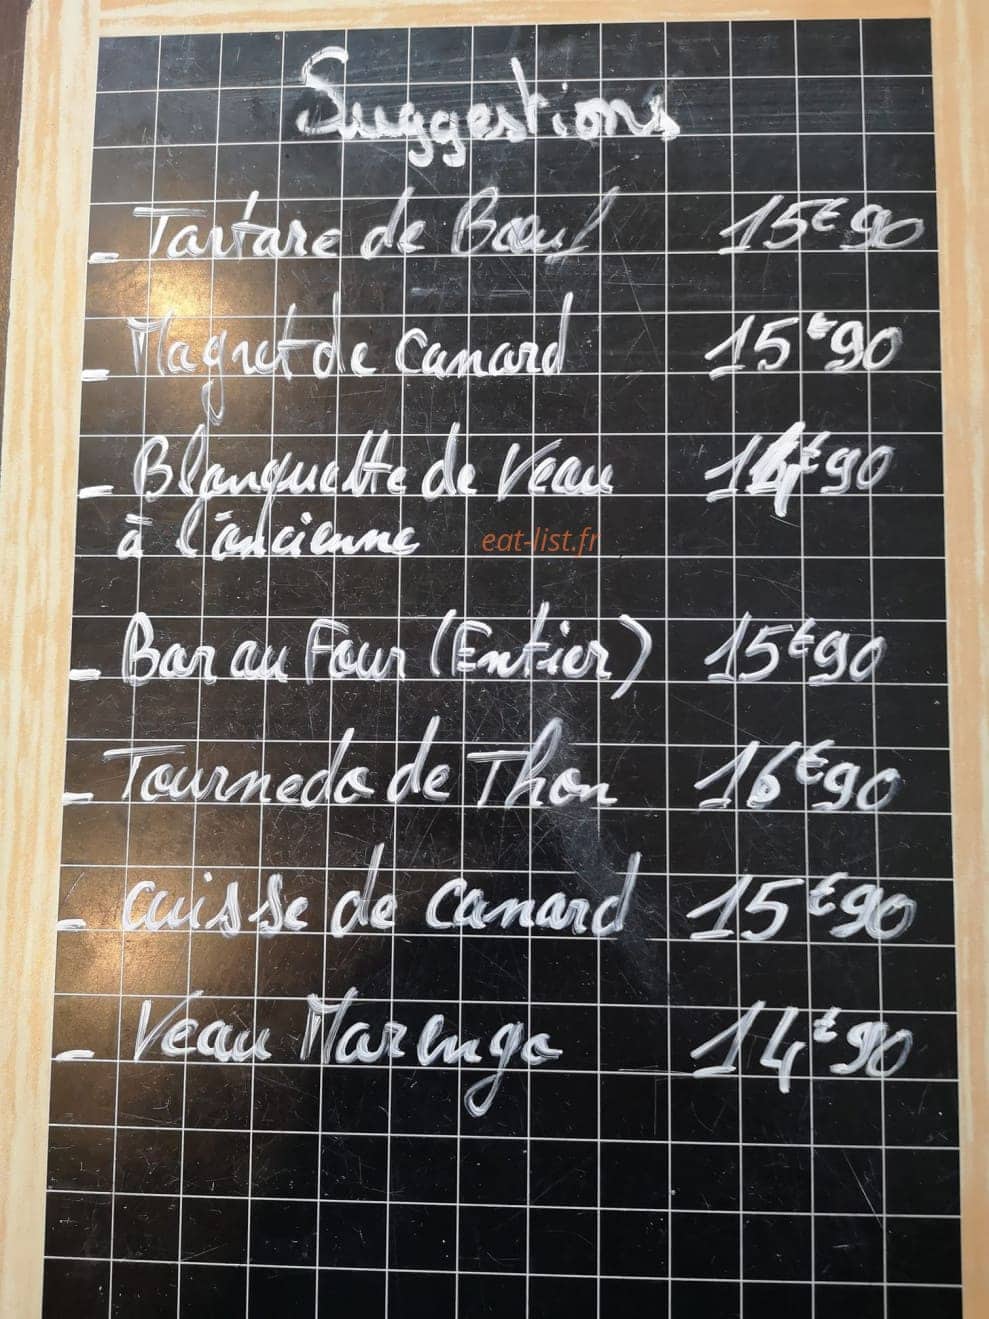 Suggestions
- Tartare de Bœuf 15€90
- Magret de Canard 15€90
- Blanquette de Veau 14€90
à l'ancienne
eat-list.fr
- Bar au Four (Entier) 15€90
- Tournedo de Thon 16€90
- Cuisse de Canard 15€90
- Veau Marengo 14€90